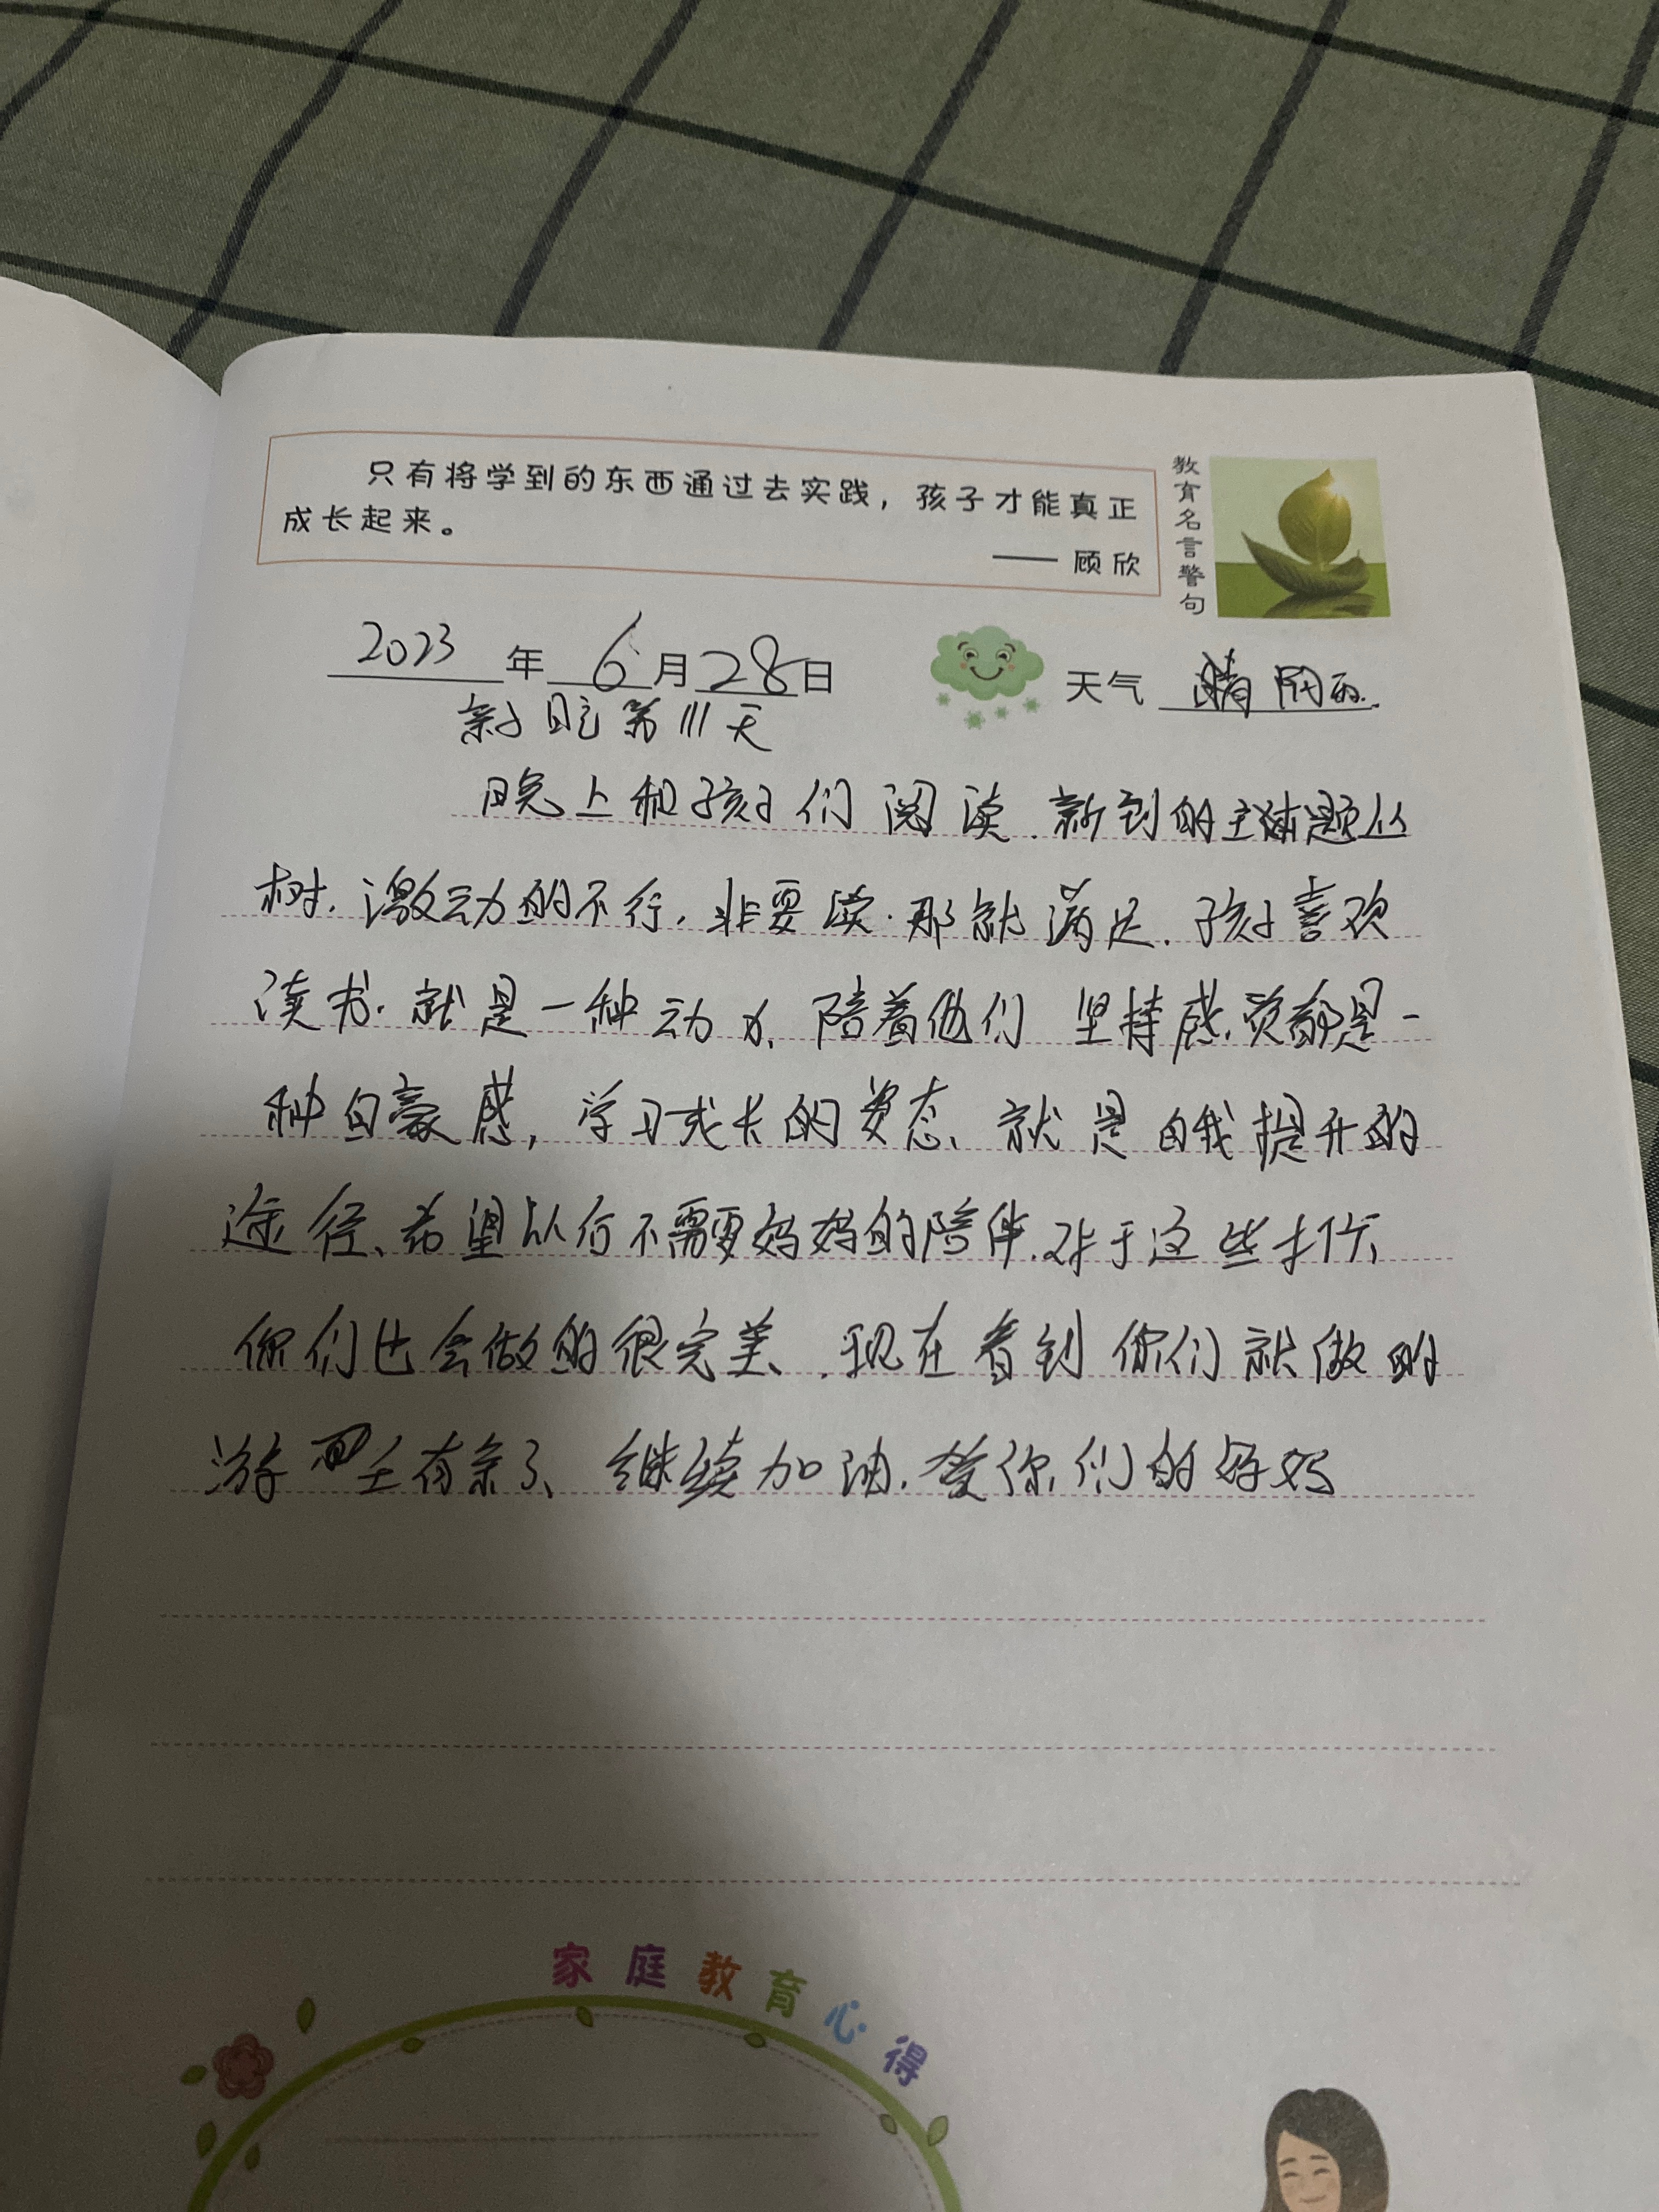 只有将学到的东西通过去实践，孩子才能真正
成长起来。
—— 顾欣
教育名言警句
2023年6月28日
天气 晴
第111天
晚上和孩子们阅读.新到的主题丛
树.激动的不行.非要读.那就满足.孩子喜欢
读书.就是一种动力、陪着他们坚持感觉都是一
种自豪感，学习成长的姿态、就是自我提升的
途径、希望从何不需要妈妈的陪伴.对于这些卡作、
你们也会做的很完美、.现在看到你们就做的
游 有余了、继续加油.爱你们的好妈
家庭教育心得